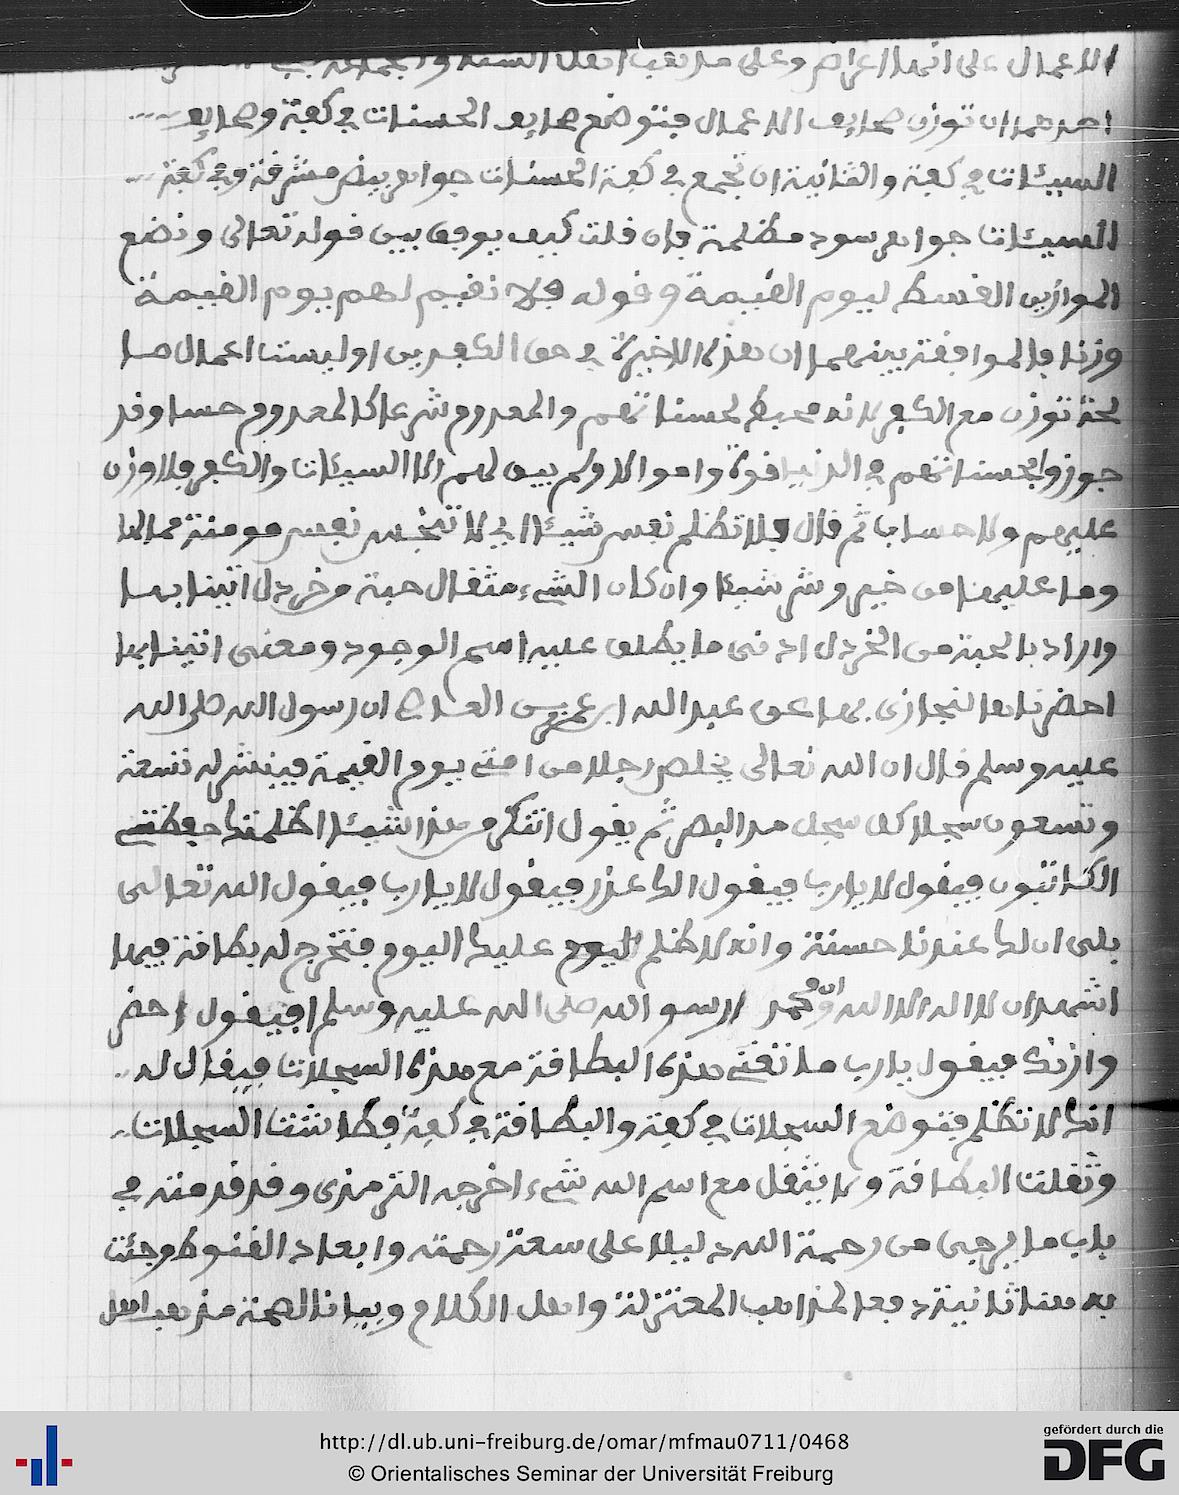 الاعمال على انها اعراض وعلى مذهب اهل السنة والجماعة
احدهما ان توزن صحايف الاعمال فتوضع صحايف الحسنات في كفة وصحايف
السيئات في كفة والثانية ان تجمع في كفة الحسنات جواهر بيض مشرفة وفي كفة
السيئات جواهر سود مظلمة فان قلت كيف يوفق بين قوله تعالى ونضع
الموازين القسط ليوم القيمة وقوله فلا نقيم لهم يوم القيمة
وزنا فالموافقة بينهما ان هذه الاخيرة في حق الكفرين او ليست اعمال صا
لحة توزن مع الكفر لانه محبط لحسناتهم والمعدوم شرعا كالمعدوم حسا وقد
جوزوا بحسناتهم في الدنيا قوة واموالا ولم يبق لهم الا السيئات والكفر فلا وزن
عليهم ولا حسابا ثم قال فلا تظلم نفس شيئا اي لا تبخس نفس مومنة مما لها
وما عليها من خير وشر شيئا وان كان الشيء مثقال حبة من خردل اتينا بها
واراد بالحبة من الخردل ادنى ما يطلق عليه اسم الوجود ومعنى اتينا بها
احضرناها لنجازى بها عن عبد الله ابن عمر بن العاص ان رسول الله صلى الله
عليه وسلم قال ان الله تعالى يخلص رجلا من امتي يوم القيمة فينشر له تسعة
وتسعون سجلا كل سجل مد البصر ثم يقول اتنكر من هذا شيئا اظلمتك حفظتي
الكاتبون فيقول لا يارب فيقول الك عذر فيقول لا يارب فيقول الله تعالى
بلى ان لك عندنا حسنة وانه لا ظلم اليوم عليك اليوم فتخرج له بطاقة فيها
اشهد ان لا اله الا الله وان محمد ا رسو الله صلى الله عليه وسلم فيقول احضر
وازنك فيقول يارب ما تغني هذه البطاقة مع هذه السجلات فيقال له
انك لا تظلم فتوضع السجلات في كفة والبطاقة في كفة فطاشت السجلات
وثقلت البطاقة ولا يثقل مع اسم الله شيء اخرجه الترمذى وقد قدمته في
باب ما يرجى من رحمة الله دليلا على سعة رحمته وابعاد القنوط وجئت
به هنا ثانية دفعا لمذاهب المعتزلة واهل الكلام وبيانا لصحة مذهب اهل
http://dl.ub.uni-freiburg.de/omar/mfmau0711/0468
© Orientalisches Seminar der Universität Freiburg
gefördert durch die
DFG